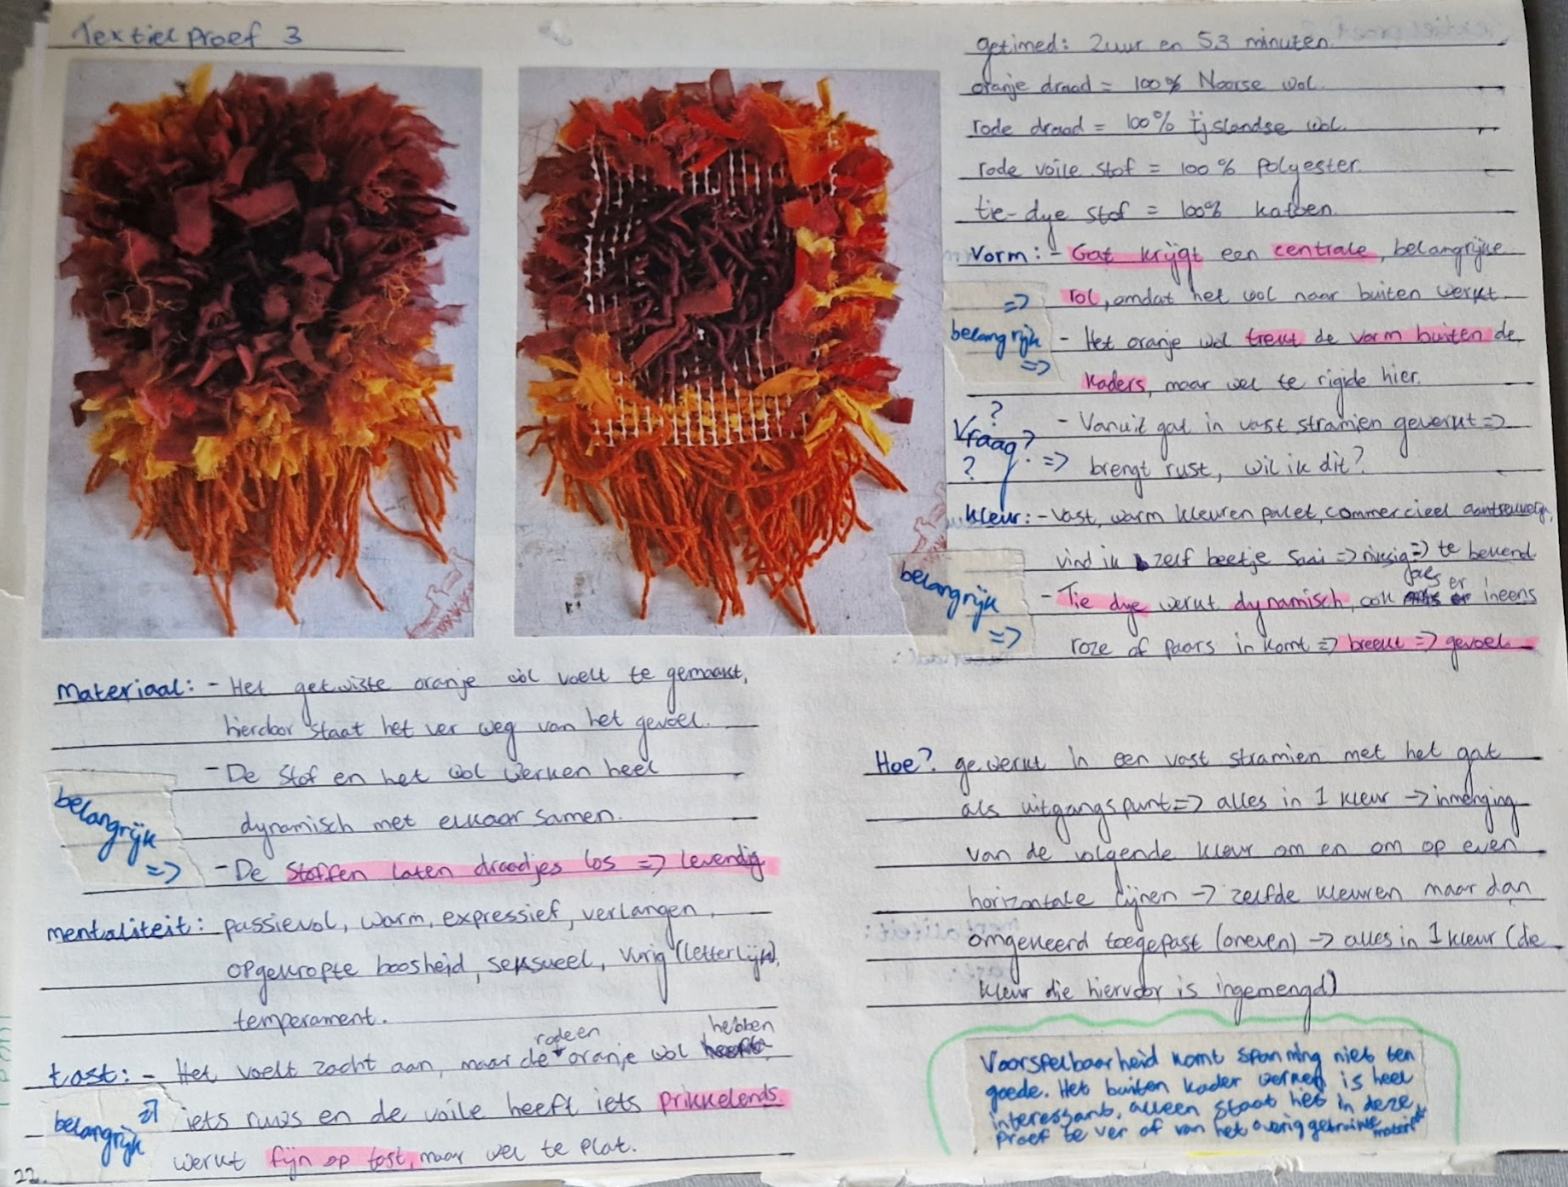 Textiel proef 3
getimed: 2uur en 53 minuten.
oranje draad = 100% Noorse wol.
rode draad = 100% ijslandse wol.
rode voile stof = 100% polyester.
tie-dye stof = 100% katoen.
Vorm: - Gat krijgt een centrale, belangrijke
rol, omdat het wol naar buiten werkt
belangrijk
=>
=>
- Het oranje wol trekt de vorm buiten de
kaders, maar wel te rigide hier.
? Vraag? ? =>
- Vanuit gat in vast stramien gewerkt =>
brengt rust, wil ik dit?
kleur: - Vast, warm kleuren palet, commercieel
vind ik zelf beetje saai => => te bekend
belangrijk
=>
- Tie dye werkt dynamisch, ook er ineens
roze of paars in komt => breekt => gevoel
Materiaal: - Het getwiste oranje wol voelt te gemaakt,
hierdoor staat het ver weg van het gevoel.
- De stof en het wol werken heel
dynamisch met elkaar samen.
belangrijk
=>
- De stoffen laten draadjes los => levendig
mentaliteit: passievol, warm, expressief, verlangen,
opgekropte boosheid, seksueel, vurig (letterlijk),
temperament.
tast: - Het voelt zacht aan, maar de rode en oranje wol hebben
iets ruws en de voile heeft iets prikkelends
belangrijk
=>
werkt fijn op tast, maar wel te plat.
22.
Hoe? gewerkt in een vast stramien met het gat
als uitgangspunt => alles in 1 kleur -> inmenging
van de volgende kleur om en om op even
horizontale lijnen -> zelfde kleuren maar dan
omgekeerd toegepast (oneven) -> alles in 1 kleur (de
kleur die hiervoor is ingemengd)
Voorspelbaarheid komt spanning niet ten
goede. Het buiten kader werken is heel
interessant, alleen staat het in deze
proef te ver af van het overig gebruikte